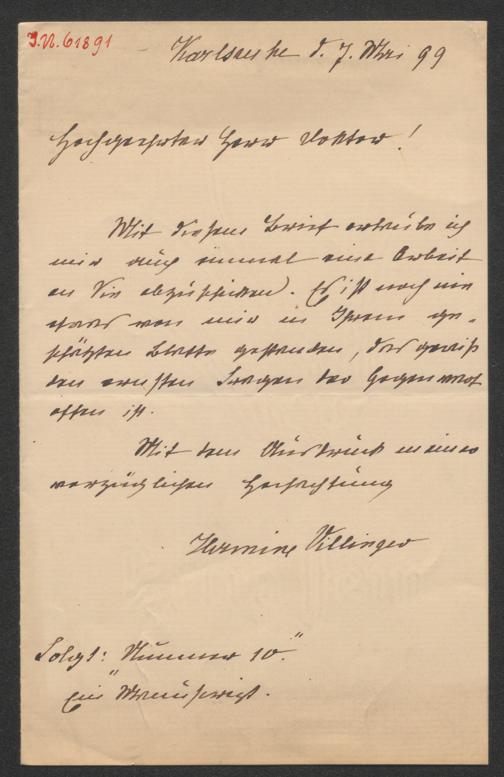 I.N. 61891
Karlsruhe d. 7. Mai 99
Hochgeehrter Herr Doktor!
Mit diesem Brief erlaube ich
mir auch einmal eine Arbeit
an Sie abzuschicken. Es ist noch nie
etwas von mir in Ihrem ge-
schätzten Blatte gestanden, das gewiß
den ernsten Fragen der Gegenwart
offen ist.
Mit dem Ausdruck meiner
vorzüglichen Hochachtung
Hermine Villinger
Folgt: Nummer 10."
Ein